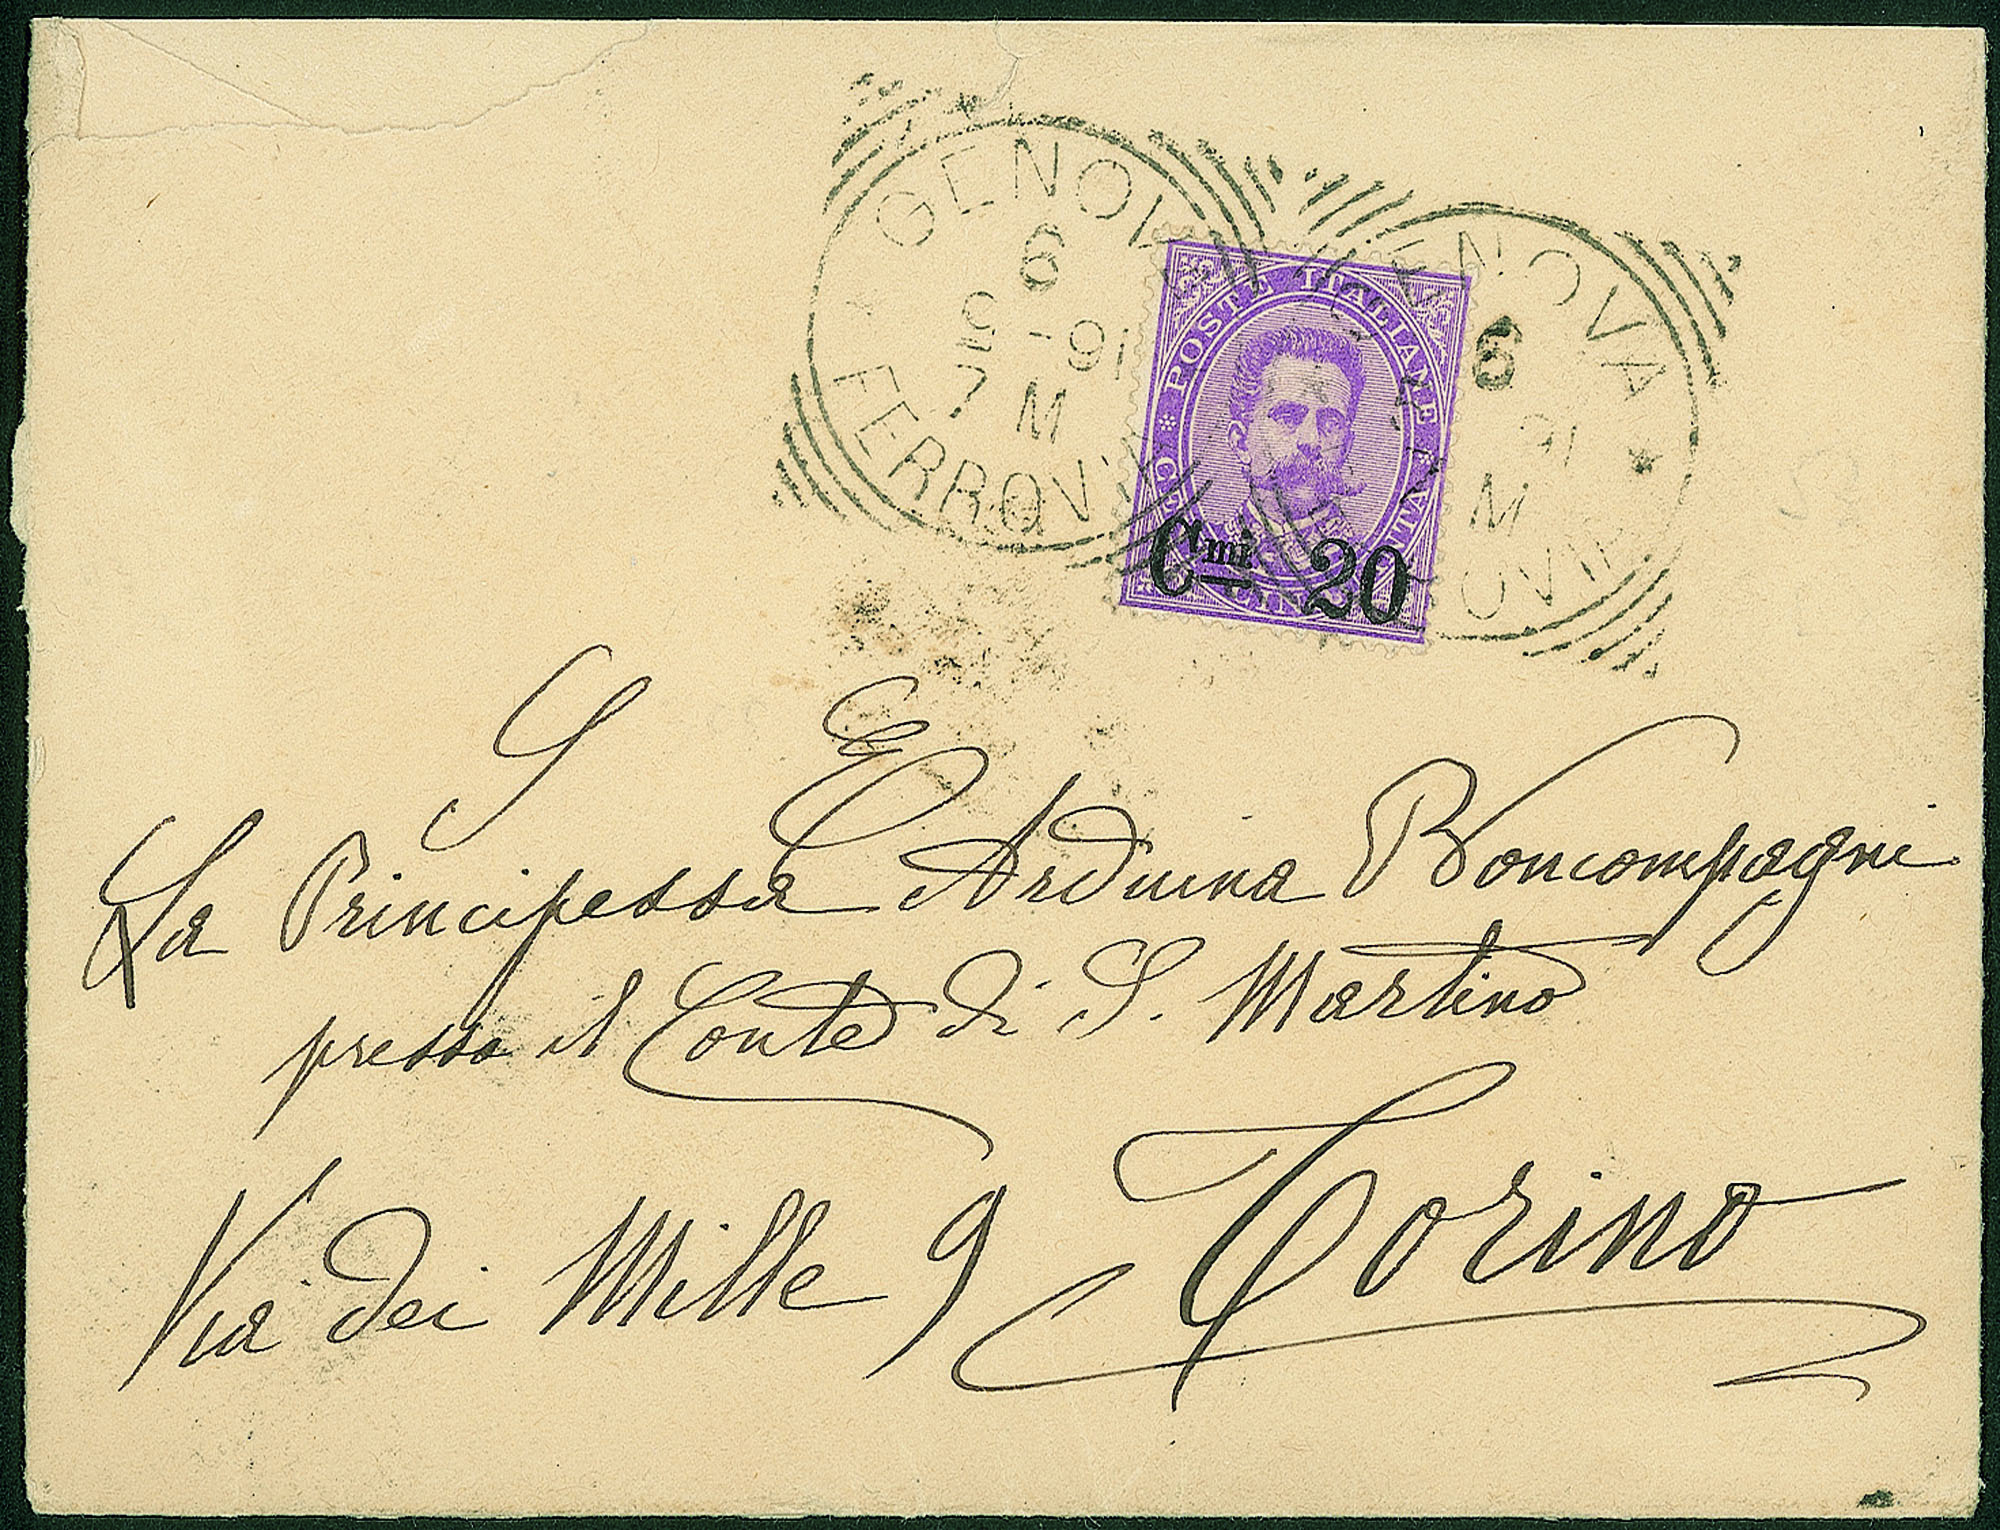 GENOVA
6
9 - 91
7 M
FERROVIA
GENOVA
6
91
M
POSTE ITALIANE
Cmi 20
S E
La Principessa Arduina Boncompagni
presso il Conte di S. Martino
Via dei Mille 9 Torino